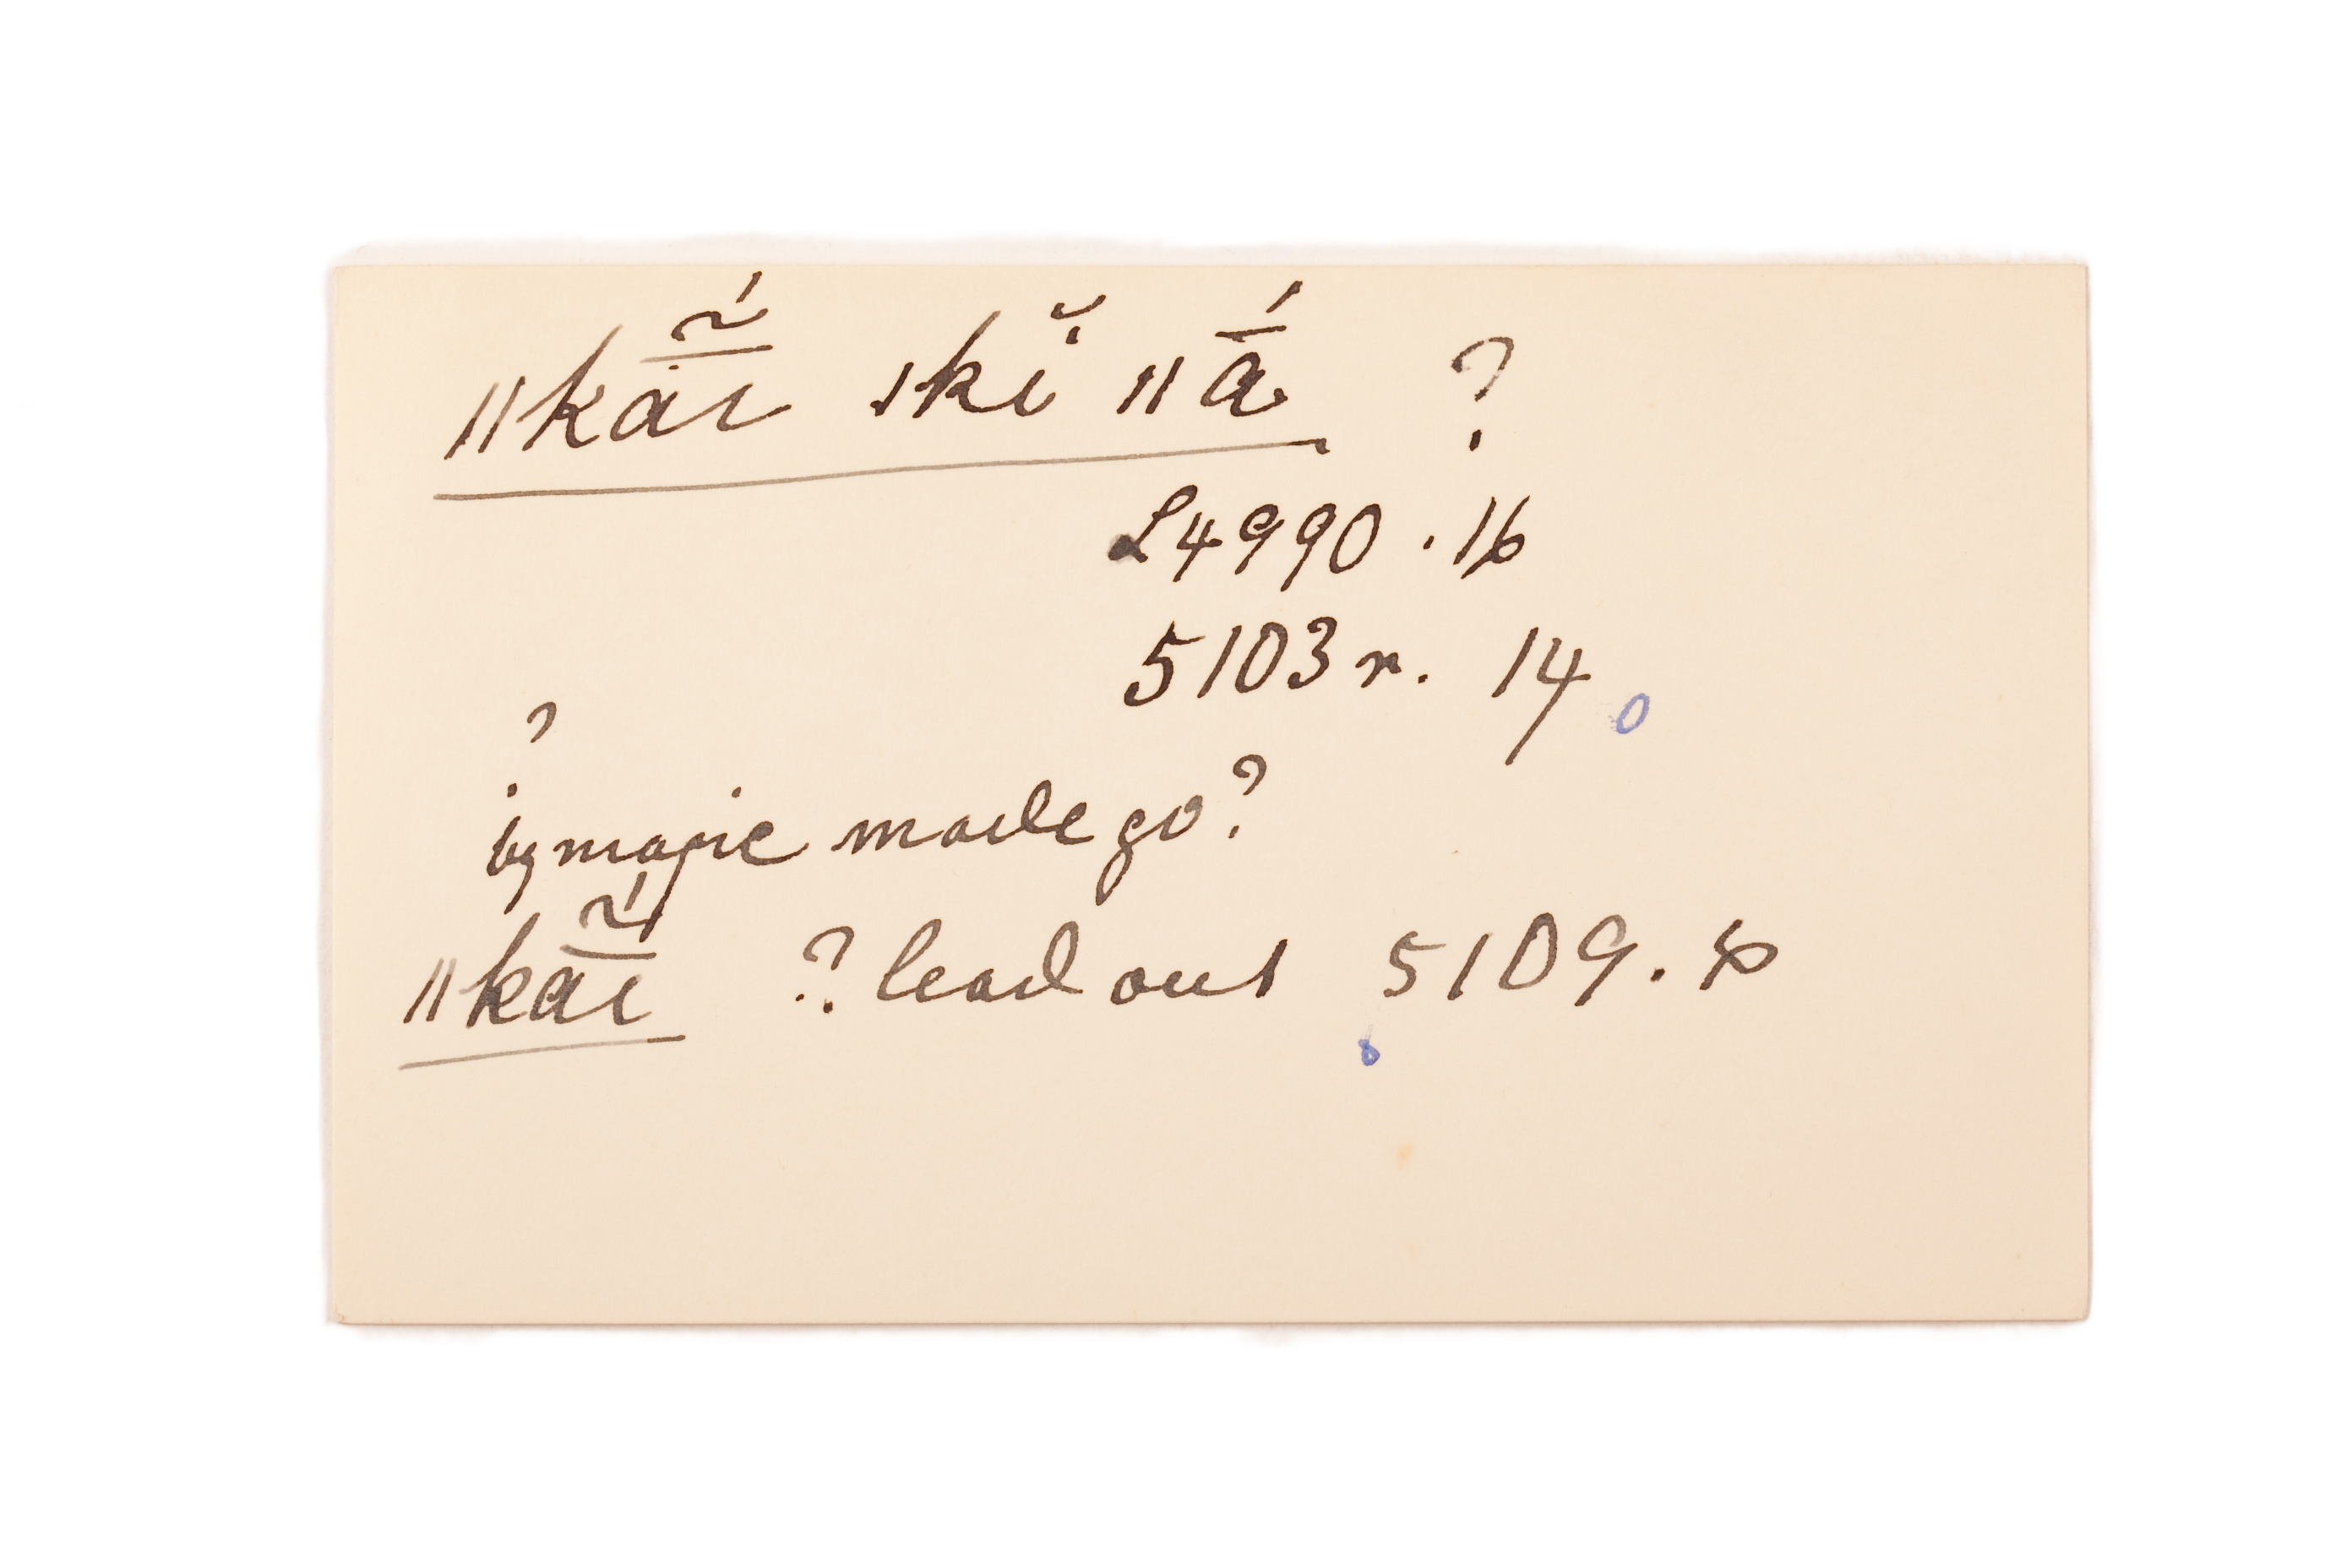 ǁkā̃́ɪ ǀkĭ ǁā́ ?
L4990 . 16
5103 r. 14
?
by magic made go?
ǁkā̃́ɪ ? lead out 5109. 8